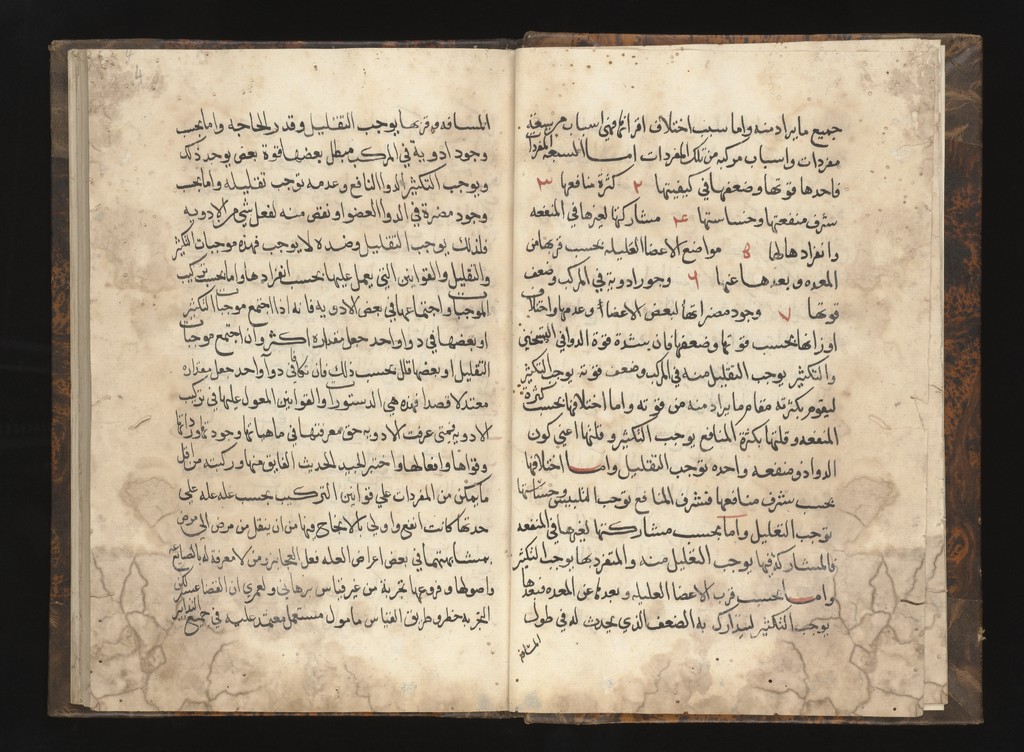 جميع ما يراد منه واما سبب اختلاف اقرانها فهي اسباب مر سبعة
مفردات واسباب مركبه من تلك المفردات اما السبعه المفردات
فاحدها قوتها وضعفها في كيفيتها ٢ كثرة منافعها ٣
شرف منفعتها وخساستها ٤ مشاركتها لغيرها في المنفعه
وانفرادها لها ٥ مواضع الاعضا العليله بحسب قربها من
المعده وبعدها عنها ٦ وجود ادوية في المركب وضعف
قوتها ٧ وجود مضراتها لبعض الاعضا وعدمها واختلاف
اوزانها بحسب قوتها وضعفها فان شدة قوة الدوا في التسخين
والتكثير يوجب التقليل منه في المركب وضعف قوته يوجب التكثير
ليقوم بكثرته مقام ما يراد منه من قوته واما اختلافها بحسب كثرة
المنفعه وقلتها بكثرة المنافع يوجب التكثير وقلتها اعني كون
الدوا ذو منفعه واحده توجب التقليل واما اختلافها
بحسب شرف منافعها فشرف المنافع توجب التلبيس وخساستها
توجب التقليل واما بحسب مشاركتها لغيرها في المنفعه
فالمشاركه فيها يوجب التقليل منه والمنفرد بها يوجب التكثير
واما بحسب قرب الاعضا العليله وبعدها عن المعده فبعدها
يوجب التكثير ليتدارك به الضعف الذي يحدث له في طول
المسافه
المسافه وقربها يوجب التقليل وقدر الحاجه واما بحسب
وجود ادوية في المركب مبطل بعضها قوة بعض يوجد ذلك
ويوجب التكثير الدوا النافع وعدمه توجب تقليله واما بحسب
وجود مضرة في الدوا لعضو او نقص منه لفعل شي من الادويه
فلذلك يوجب التقليل وضده لا يوجب فهذه موجبات التكثير
والتقليل والقوانين التي يعمل عليها بحسب انفرادها واما بحسب تركيب
الموجبات واجتماعها في بعض الادويه فانه اذا اجتمع موجبات التكثير
او بعضها في دوا واحد جعل مقداره اكثر وان اجتمع موجبات
التقليل او بعضها قلل بحسب ذلك فان تكافى في دوا واحد جعل مقداره
معتدلا قصدا فهذه هي الدستورات والقوانين المعول عليها في تركيب
الادويه فمتى عرفت الادويه حق معرفتها في ماهياتها وجودتها ورداتها
وقواها وافعالها واختير الجيد الحديث الفايق منها وركبته من اقل
ما يمكن من المفردات علي قوانين التركيب بحسب عله عله علي
حدتها كانت انفع واولي بالانجاح فيها من ان ينقل من مرض الي مرض
بمشابهتها في بعض اعراض العله فعل العجايز ومن لا معرفة له بالصناعه
واصولها وفروعها تجربة من غير قياس برهاني ولعمري ان الفضا عسر لكن
التجربه خطر وطريق القياس مامول مستعمل معتمد عليه في جميع